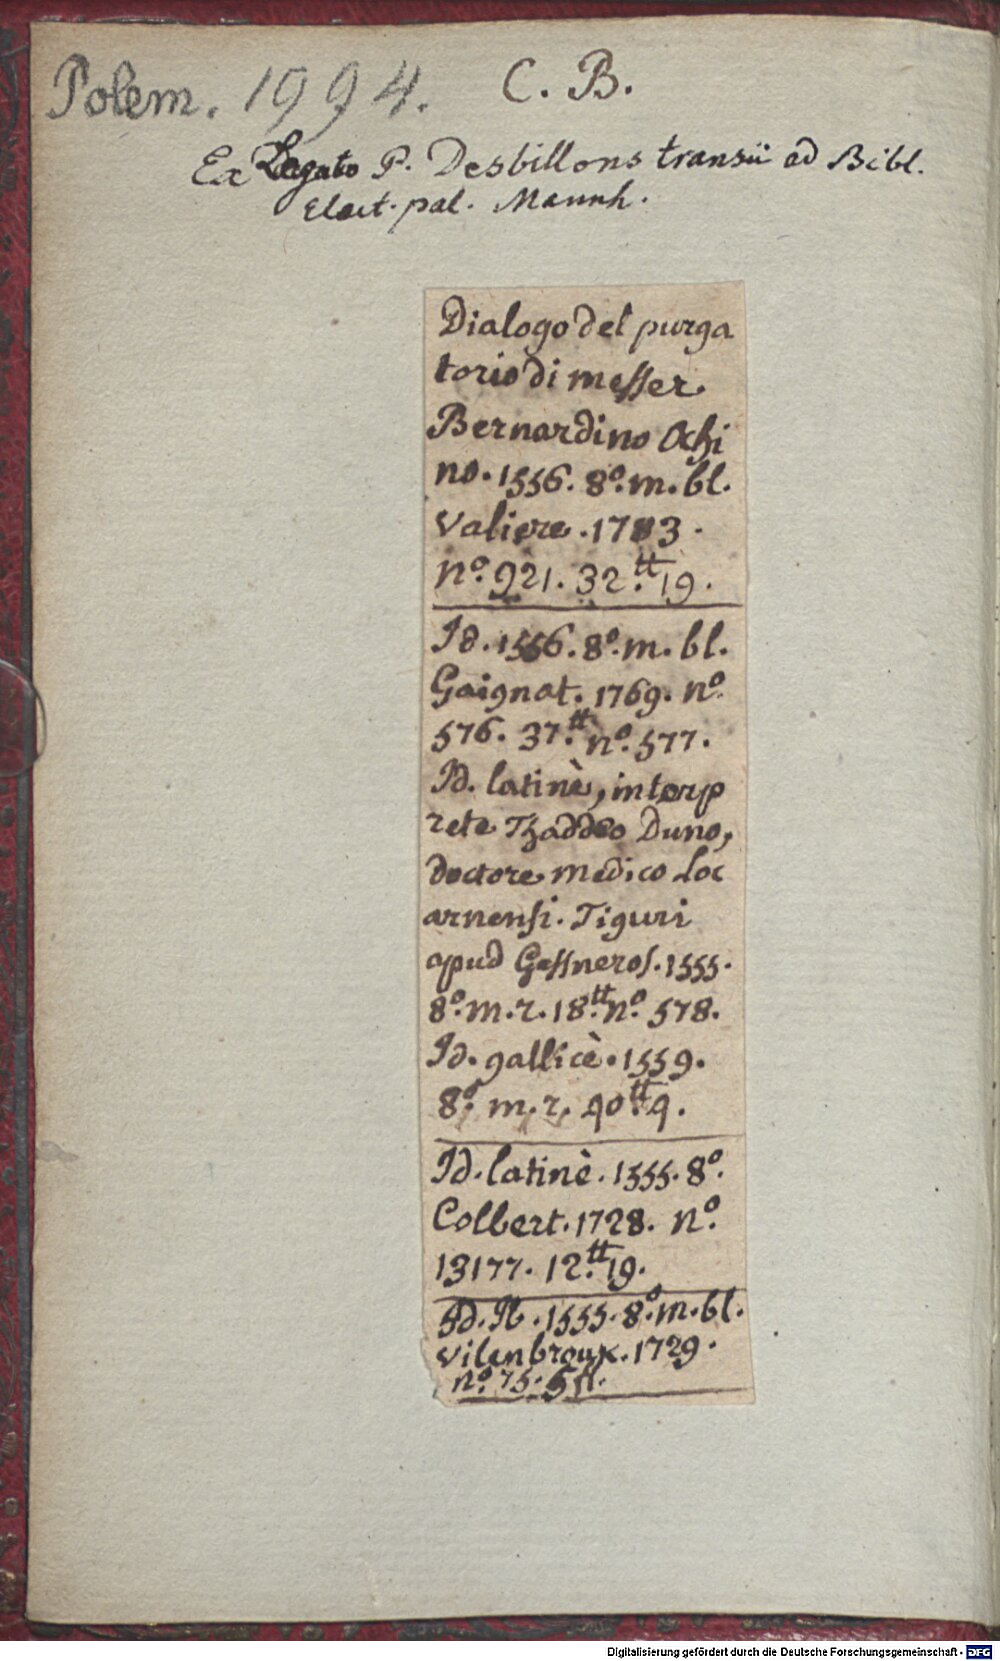 Polem. 1994. C. B.
Ex Legato P. Desbillons transii ad Bibl.
Elect. pal. Mannh.
Dialogo del purga
torio di messer
Bernardino Ochi
no. 1556. 8.º m. bl.
Valiere. 1783.
nº. 921. 32.tt 19.
Id. 1556. 8.º m. bl.
Gaignat. 1769. nº.
576. 37.tt nº. 577.
Id. latinè, interp
rete Thaddeo Duno,
doctore medico Loc
arnensi. Tiguri
apud Gessneros. 1555.
8.º m. r. 18.tt nº. 578.
Id. gallicè. 1559.
8.º m. r. 40.tt 4.
Id. latinè. 1555. 8º.
Colbert. 1728. nº.
13177. 12.tt 19.
Id. It. 1555. 8.º m. bl.
Vilenbroux. 1729.
nº. 75. 5fl.
Digitalisierung gefördert durch die Deutsche Forschungsgemeinschaft - DFG